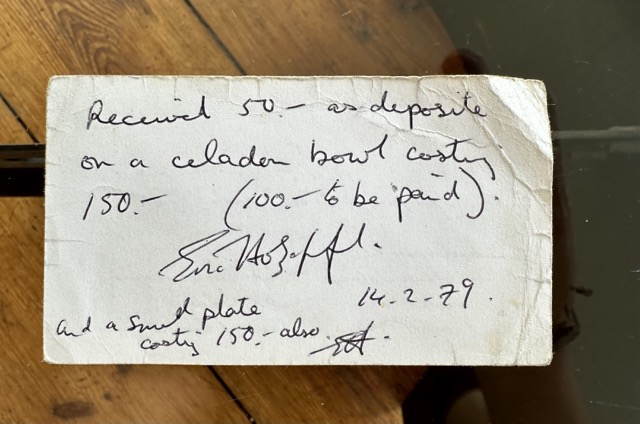 Received 50.- as deposite
on a celadon bowl costing
150.- (100.- to be paid).
14-2-79.
and a small plate
costing 150.- also.